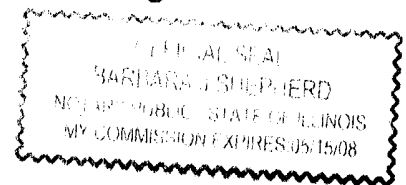 OFFICIAL SEAL
BARBARA J SHEPHERD
NOTARY PUBLIC - STATE OF ILLINOIS
MY COMMISSION EXPIRES:05/15/08